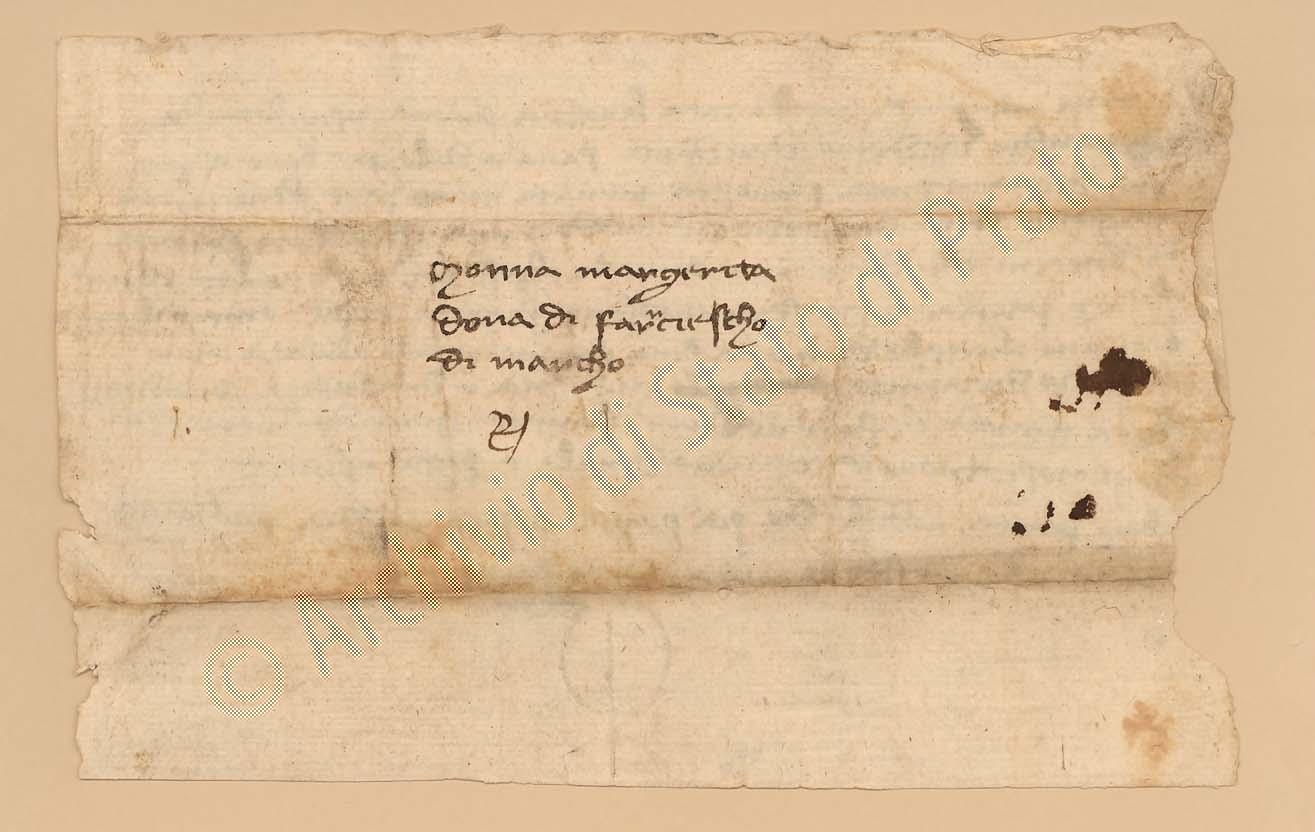 Monna margerita
dona di farciescho
di marcho
© Archivio di Stato di Prato